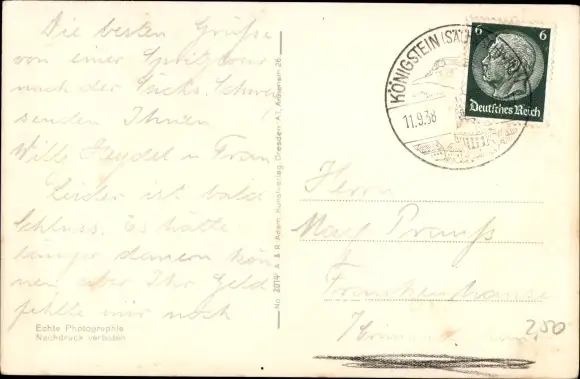 Die besten Grüße
von einer Spritztour
nach der Sächs. Schweiz
senden Ihnen
Willi Heydel u. Frau
Leider ist bald
Schluss. Es hätte
länger dauern kön
nen aber Ihr Geld
fehlte mir noch
Echte Photographie
Nachdruck verboten
No. 2014 A. & R. Adam, Kunstverlag Dresden
KÖNIGSTEIN (SÄCHS
11.9.38
6 6
Deutsches Reich
Herrn
Max Preuß
Frankenhausen
250